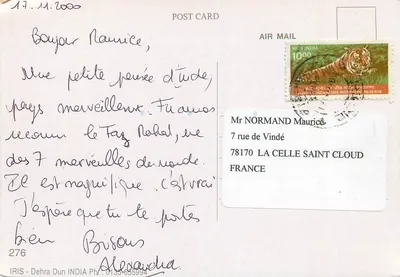 17.11.2000
POST CARD
AIR MAIL
Bonjour Maurice,
Une petite pensée d'Inde,
pays merveilleux. J'ai
le Taj Mahal, une
des 7 merveilles du monde.
Il est magnifique c'est vrai
J'espère que tu te portes
bien Bisous
Alexandra
भारत INDIA
10.00
Mr NORMAND Maurice
7 rue de Vindé
78170 LA CELLE SAINT CLOUD
FRANCE
276
IRIS - Dehra Dun INDIA Ph.: 0135-655994